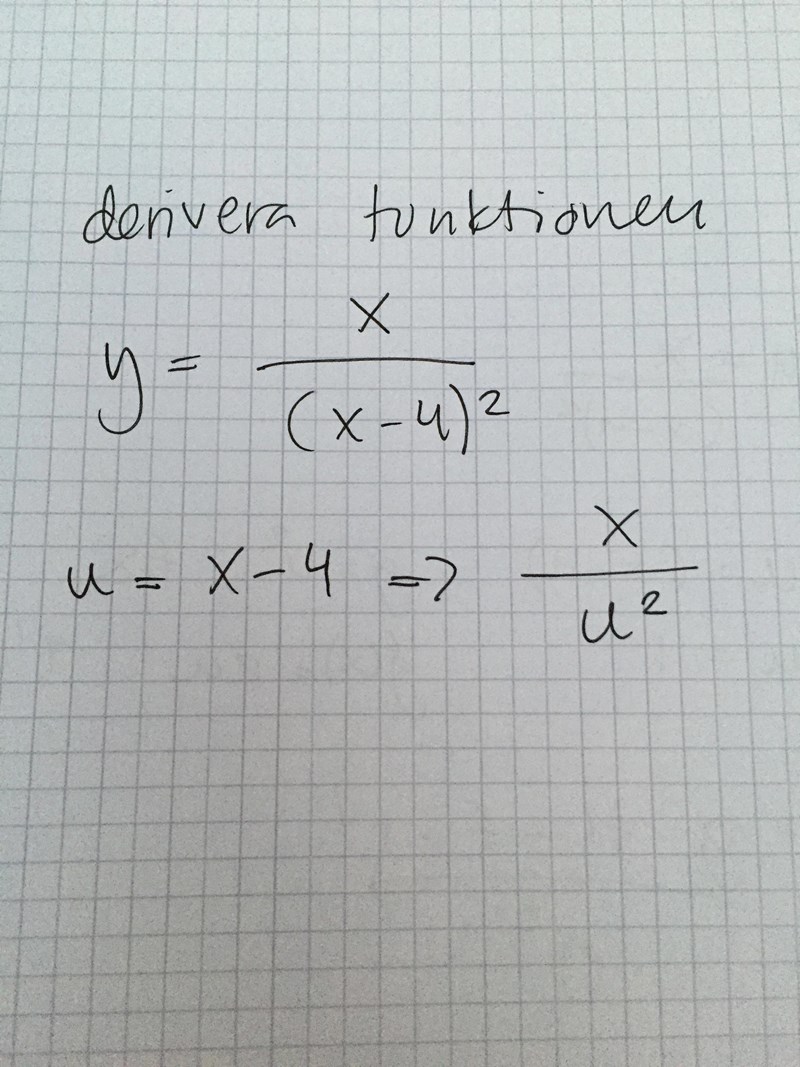 derivera funktionen
y = x / (x-4)²
u = x-4 => x / u²